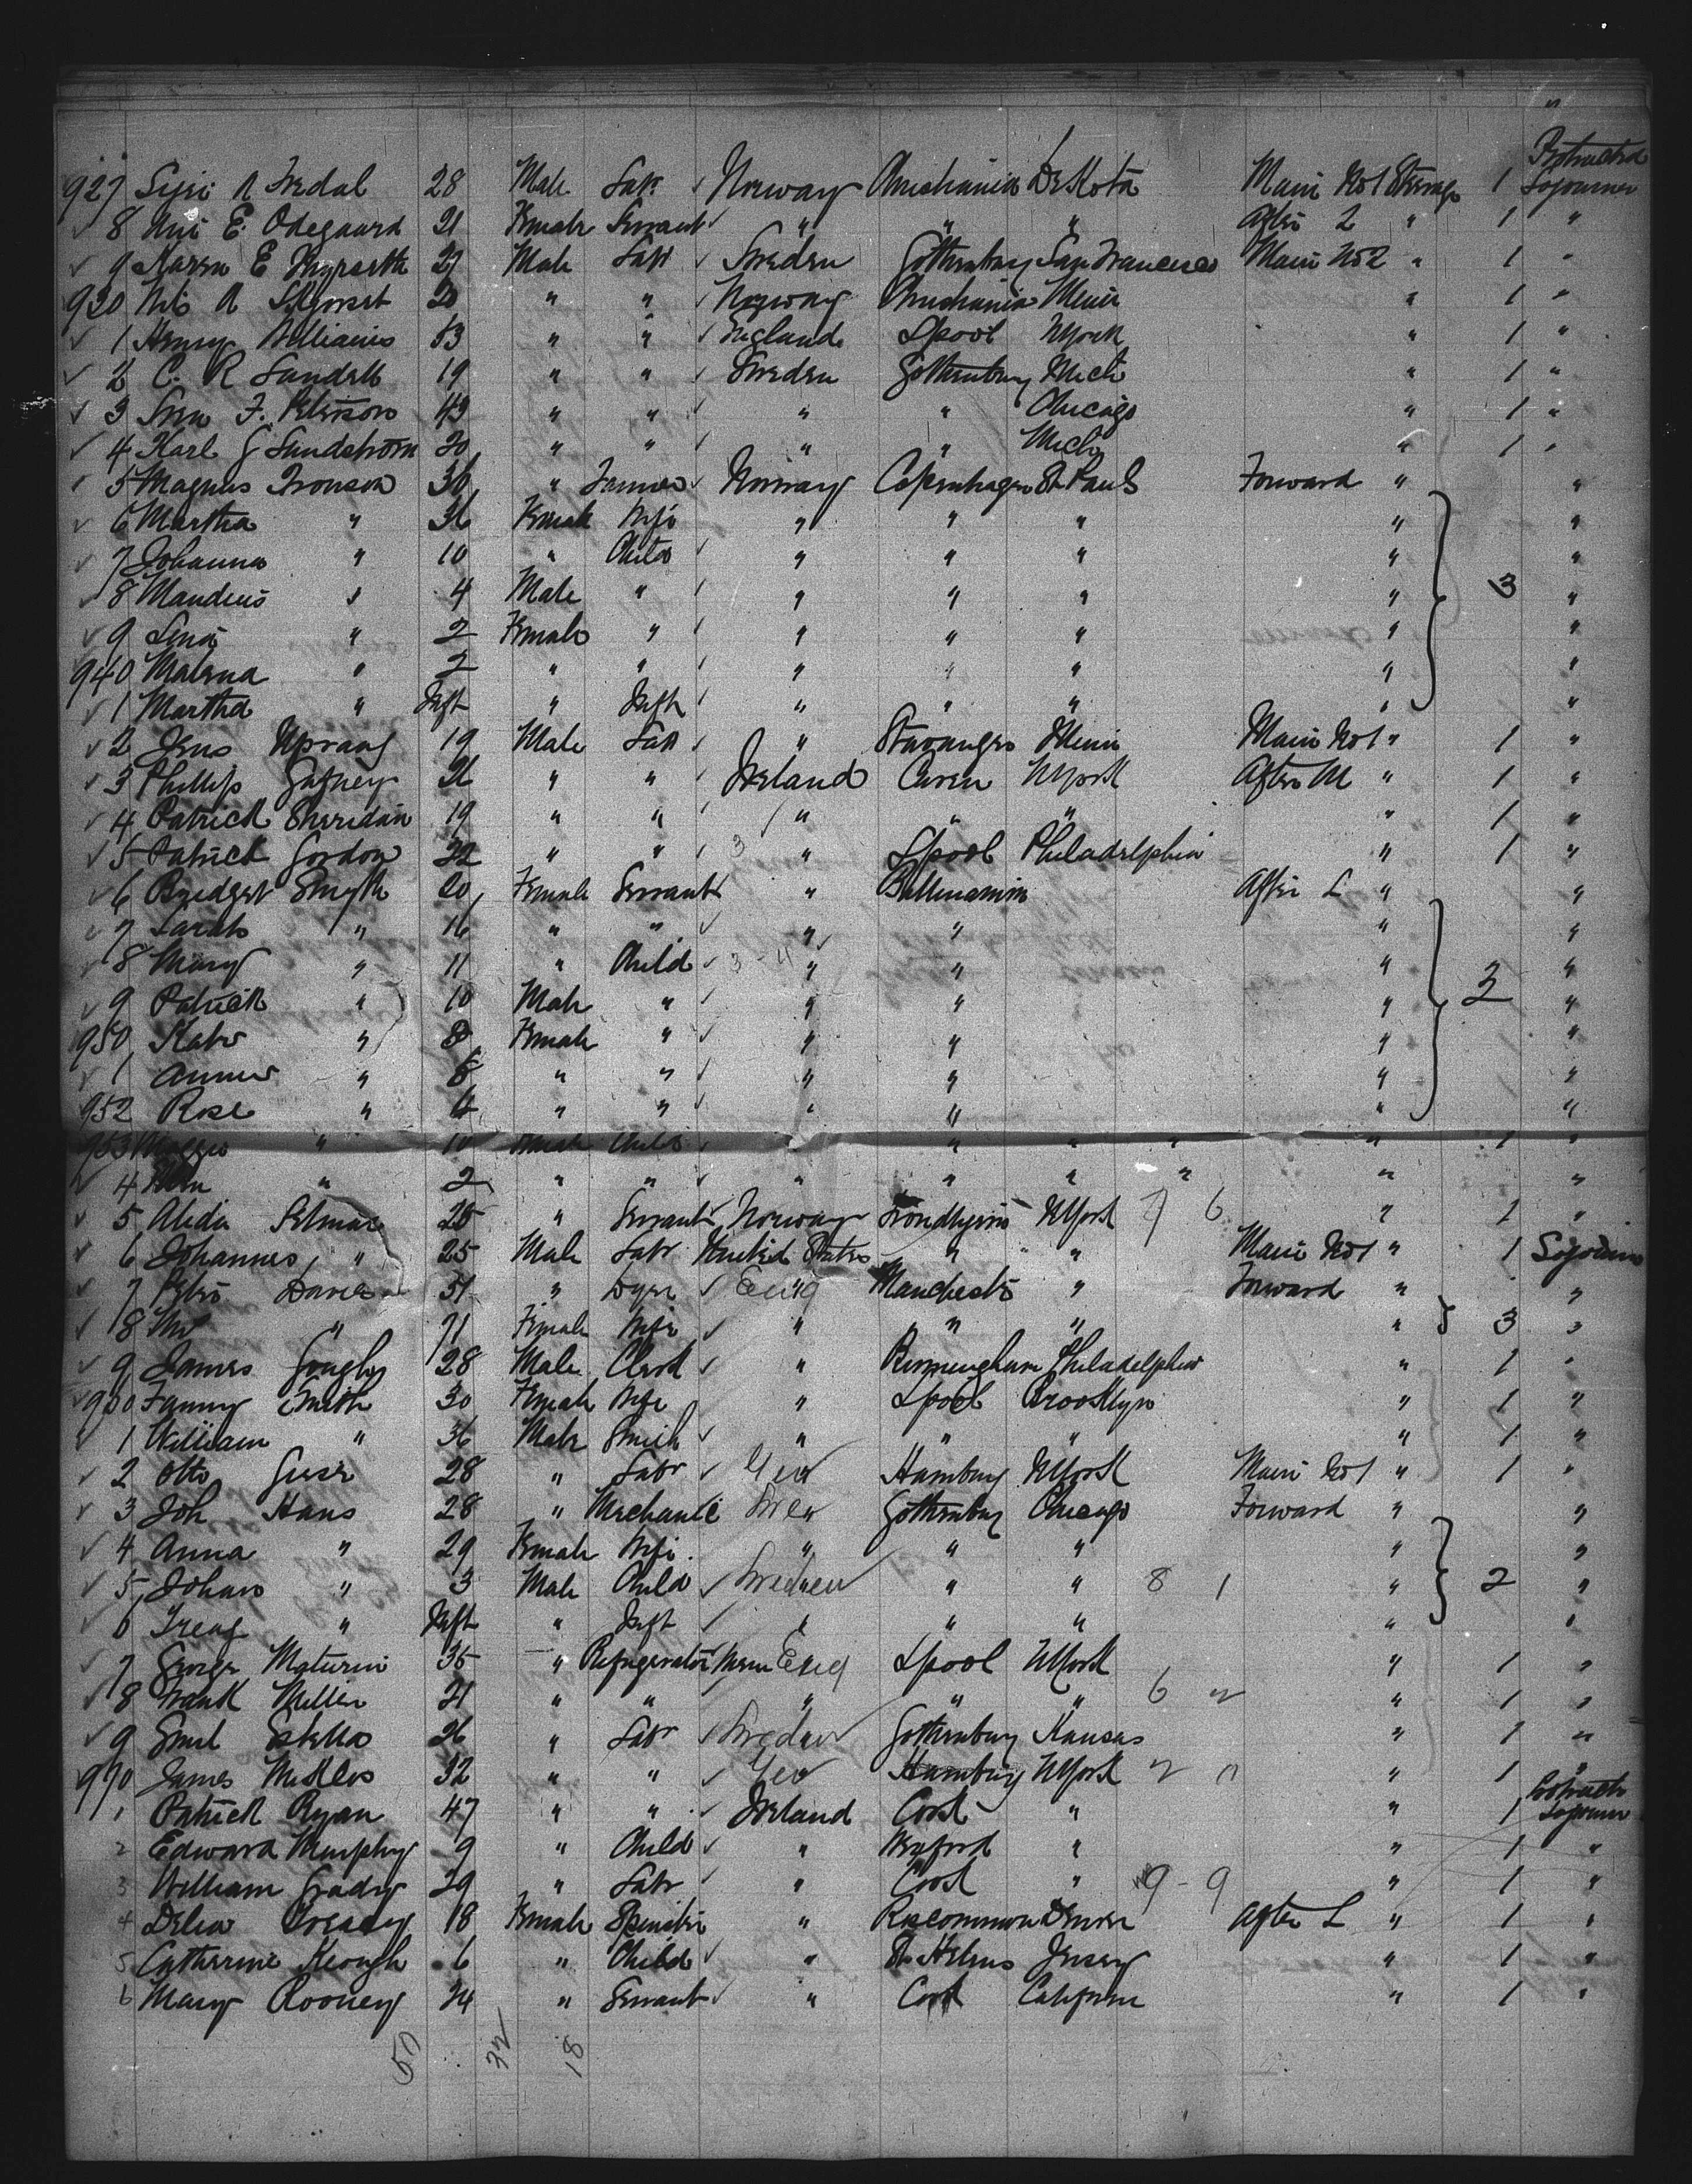 "
Protracted
927 Syri A Tredal 28 Male Labr Norway Christiania Dakota Main No 1 Steerage 1 Sojourner
8 E. Odegaard 21 Female Servant " " " After 2 " 1 "
9 Karen E 27 Male Labr Sweden Gothenburg San Francisco Main No 2 " 1 "
930 Nils A 20 " " Norway Christiania Minn " 1 "
1 Henry Williams 53 " " England Lpool NYork " 1 "
2 C. R Sandell 19 " " Sweden Gothenburg Mich " 1 "
3 Sven F. Peterson 43 " " " " Chicago " 1 "
4 Karl G Sundstrom 20 " " " " Mich " 1 "
5 Magnus Tronson 36 " Farmer Norway Copenhagen St Paul Forward " "
6 Martha " 36 Female Wife " " " " "
7 Johanna " 10 " Child " " " " "
8 Mandius " 4 Male " " " " " 3 "
9 Lina " 2 Female " " " " " "
940 Malena " 2 " " " " " " "
1 Martha " Inft " Inft " " " " "
2 Jens 19 Male Labr " Stavanger Minn Main No 1 " 1 "
3 Phillip Gafney 21 " " Ireland Cavan NYork After M " 1 "
4 Patrick Sheridan 19 " " " " " " 1 "
5 Patrick Gordon 22 " " 3 " Lpool Philadelphia " 1 "
6 Bridget Smyth 20 Female Servant " Ballinamin After L " "
7 Sarah " 16 " " " " " "
8 Mary " 11 " Child 3 - 4 " " " "
9 Patrick " 10 Male " " " " 3 "
950 Kate " 8 Female " " " " "
1 Annie " 6 " " " " " "
952 Rose " 4 " " " " " "
953 Maggie " 10 Female Child " " " " " 1 "
4 " 2 " " " " " " " "
5 Alida 25 " Servant Norway Trondhjem NYork 7 6 " 1 "
6 Johannes " 25 Male Labr United States " " " Main No 1 " 1 Sojourner
7 Peter Davies 51 " Dyer Eng Manchester " Forward " "
8 Mrs " 71 Female Wife " " " " 3 "
9 James Gough 28 Male Clerk " Birmingham Philadelphia " 1 "
960 Fanny Smith 30 Female Wife " Lpool Brooklyn " 1 "
1 William " 36 Male Smith " " " " 1 "
2 Otto Giese 28 " Labr Ger Hamburg NYork Main No 1 " 1 "
3 Joh Hans 28 " Mechanic Swe Gothenburg Chicago Forward " "
4 Anna " 29 Female Wife " " " " "
5 Johan " 3 Male Child Sweden " " 8 1 " 2 "
6 " Inft " Inft " " " " "
7 George Maturin 35 " Refrigerator Man Eng Lpool NYork " 1 "
8 Frank Miller 21 " " " " " 6 2 " 1 "
9 Emil Estello 26 " Labr Sweden Gothenburg Kansas " 1 "
970 James 32 " " Ger Hamburg NYork 2 0 " 1 "
Protracted
1 Patrick Ryan 47 " " Ireland Cork " " 1 Sojourner
2 Edward Murphy 9 " Child " Wexford " " 1 "
3 William Grady 29 " Labr " Cork " 9 - 9 " 1 "
4 Delia 18 Female Spinster " Roscommon Denver After L " 1 "
5 Catherine Keough 6 " Child " St Helens Jersey " 1 "
6 Mary Rooney 24 " Servant " Cork " 1 "
50 32 18